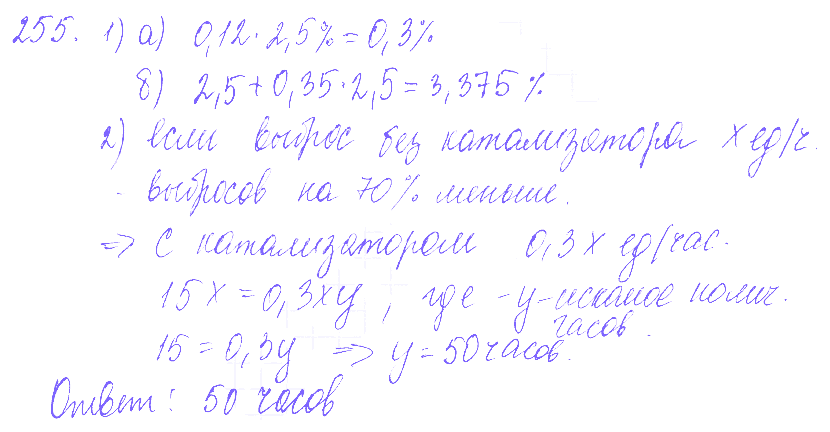 255. 1) а) 0,12·2,5% = 0,3%
б) 2,5+0,35·2,5 = 3,375 %
2) если выброс без катализатора x ед/ч.
- выбросов на 70% меньше.
=> с катализатором 0,3x ед/час.
15x = 0,3xy, где -y- искомое колич. часов.
15 = 0,3y => y = 50 часов.
Ответ: 50 часов